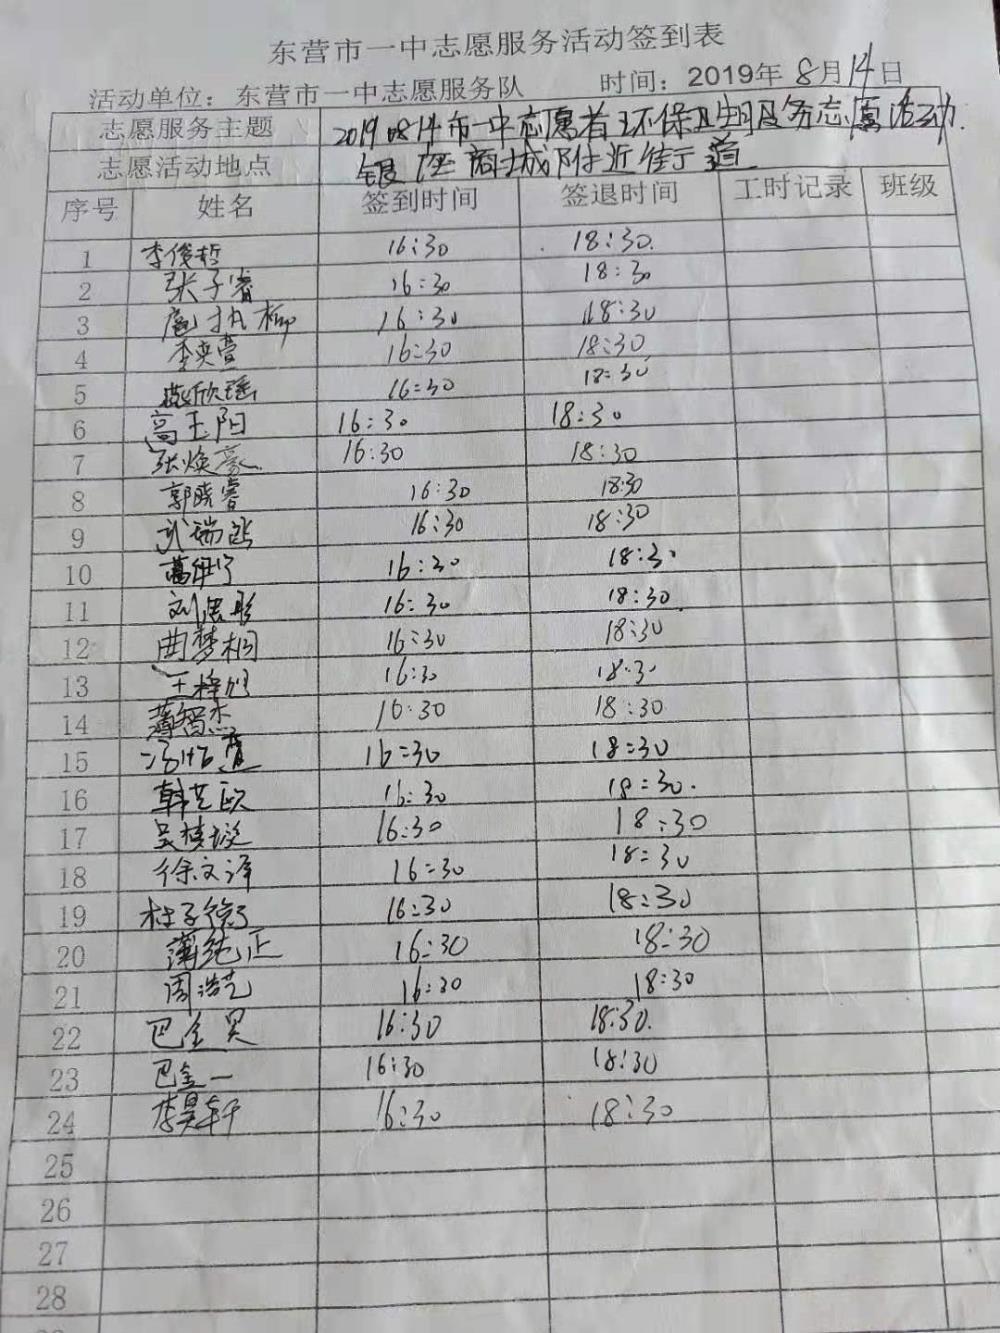 东营市一中志愿服务活动签到表
活动单位：东营市一中志愿服务队 时间：2019年8月14日
志愿服务主题 20190814市一中志愿者环保卫生服务志愿活动.
志愿活动地点 银座商城附近街道
序号 姓名 签到时间 签退时间 工时记录 班级
1 李俊哲 16:30 18:30.
2 张子睿 16:30 18:30
3 16:30 18:30
4 李奕萱 16:30 18:30
5 燕欣瑶 16:30 18:30
6 高玉阳 16:30 18:30
7 张焕豪 16:30 18:30
8 郭晓睿 16:30 18:30
9 武瑞 16:30 18:30
10 16:30 18:30
11 刘思彤 16:30 18:30
12 曲梦桐 16:30 18:30
13 王梓旭 16:30 18:30
14 薄智杰 16:30 18:30
15 16:30 18:30
16 韩艺欧 16:30 18:30.
17 吴梦璇 16:30 18:30
18 徐文泽 16:30 18:30
19 杜子 16:30 18:30
20 薄纯正 16:30 18:30
21 周浩艺 16:30 18:30
22 巴金昊 16:30 18:30.
23 巴金一 16:30 18:30
24 李昊轩 16:30 18:30
25
26
27
28